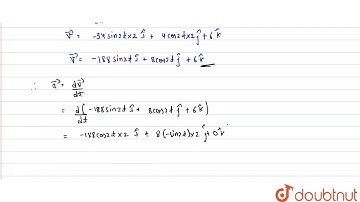 v⃗ = -34 sin2t x2 î + 4 cos2t x2 ĵ + 6 k̂
v⃗ = -188 sin2t î + 8cos2t ĵ + 6 k̂
∴ a⃗ = dv⃗/dt
= d/dt ( -188 sin2t î + 8cos2t ĵ + 6 k̂ )
= -188 cos2t x2 î + 8 (-sin2t) x2 ĵ + 0 k̂
doubtnut